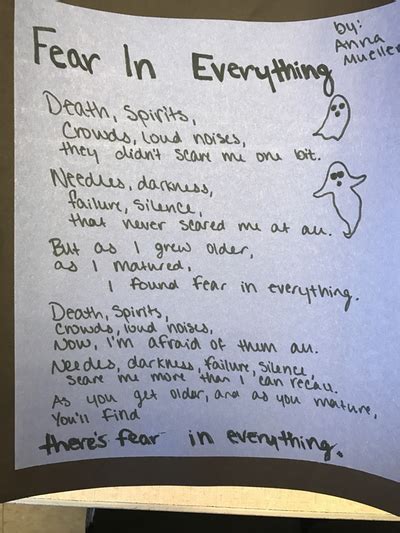 Fear In Everything
by:
Anna
Mueller
Death, spirits,
Crowds, loud noises,
they didn't scare me one bit.
Needles, darkness,
failure, silence,
that never scared me at all.
But as I grew older,
as I matured,
I found fear in everything.
Death, spirits,
crowds, loud noises,
Now, I'm afraid of them all.
Needles, darkness, failure, silence,
scare me more than I can recall.
As you get older, and as you mature,
You'll find
there's fear in everything.